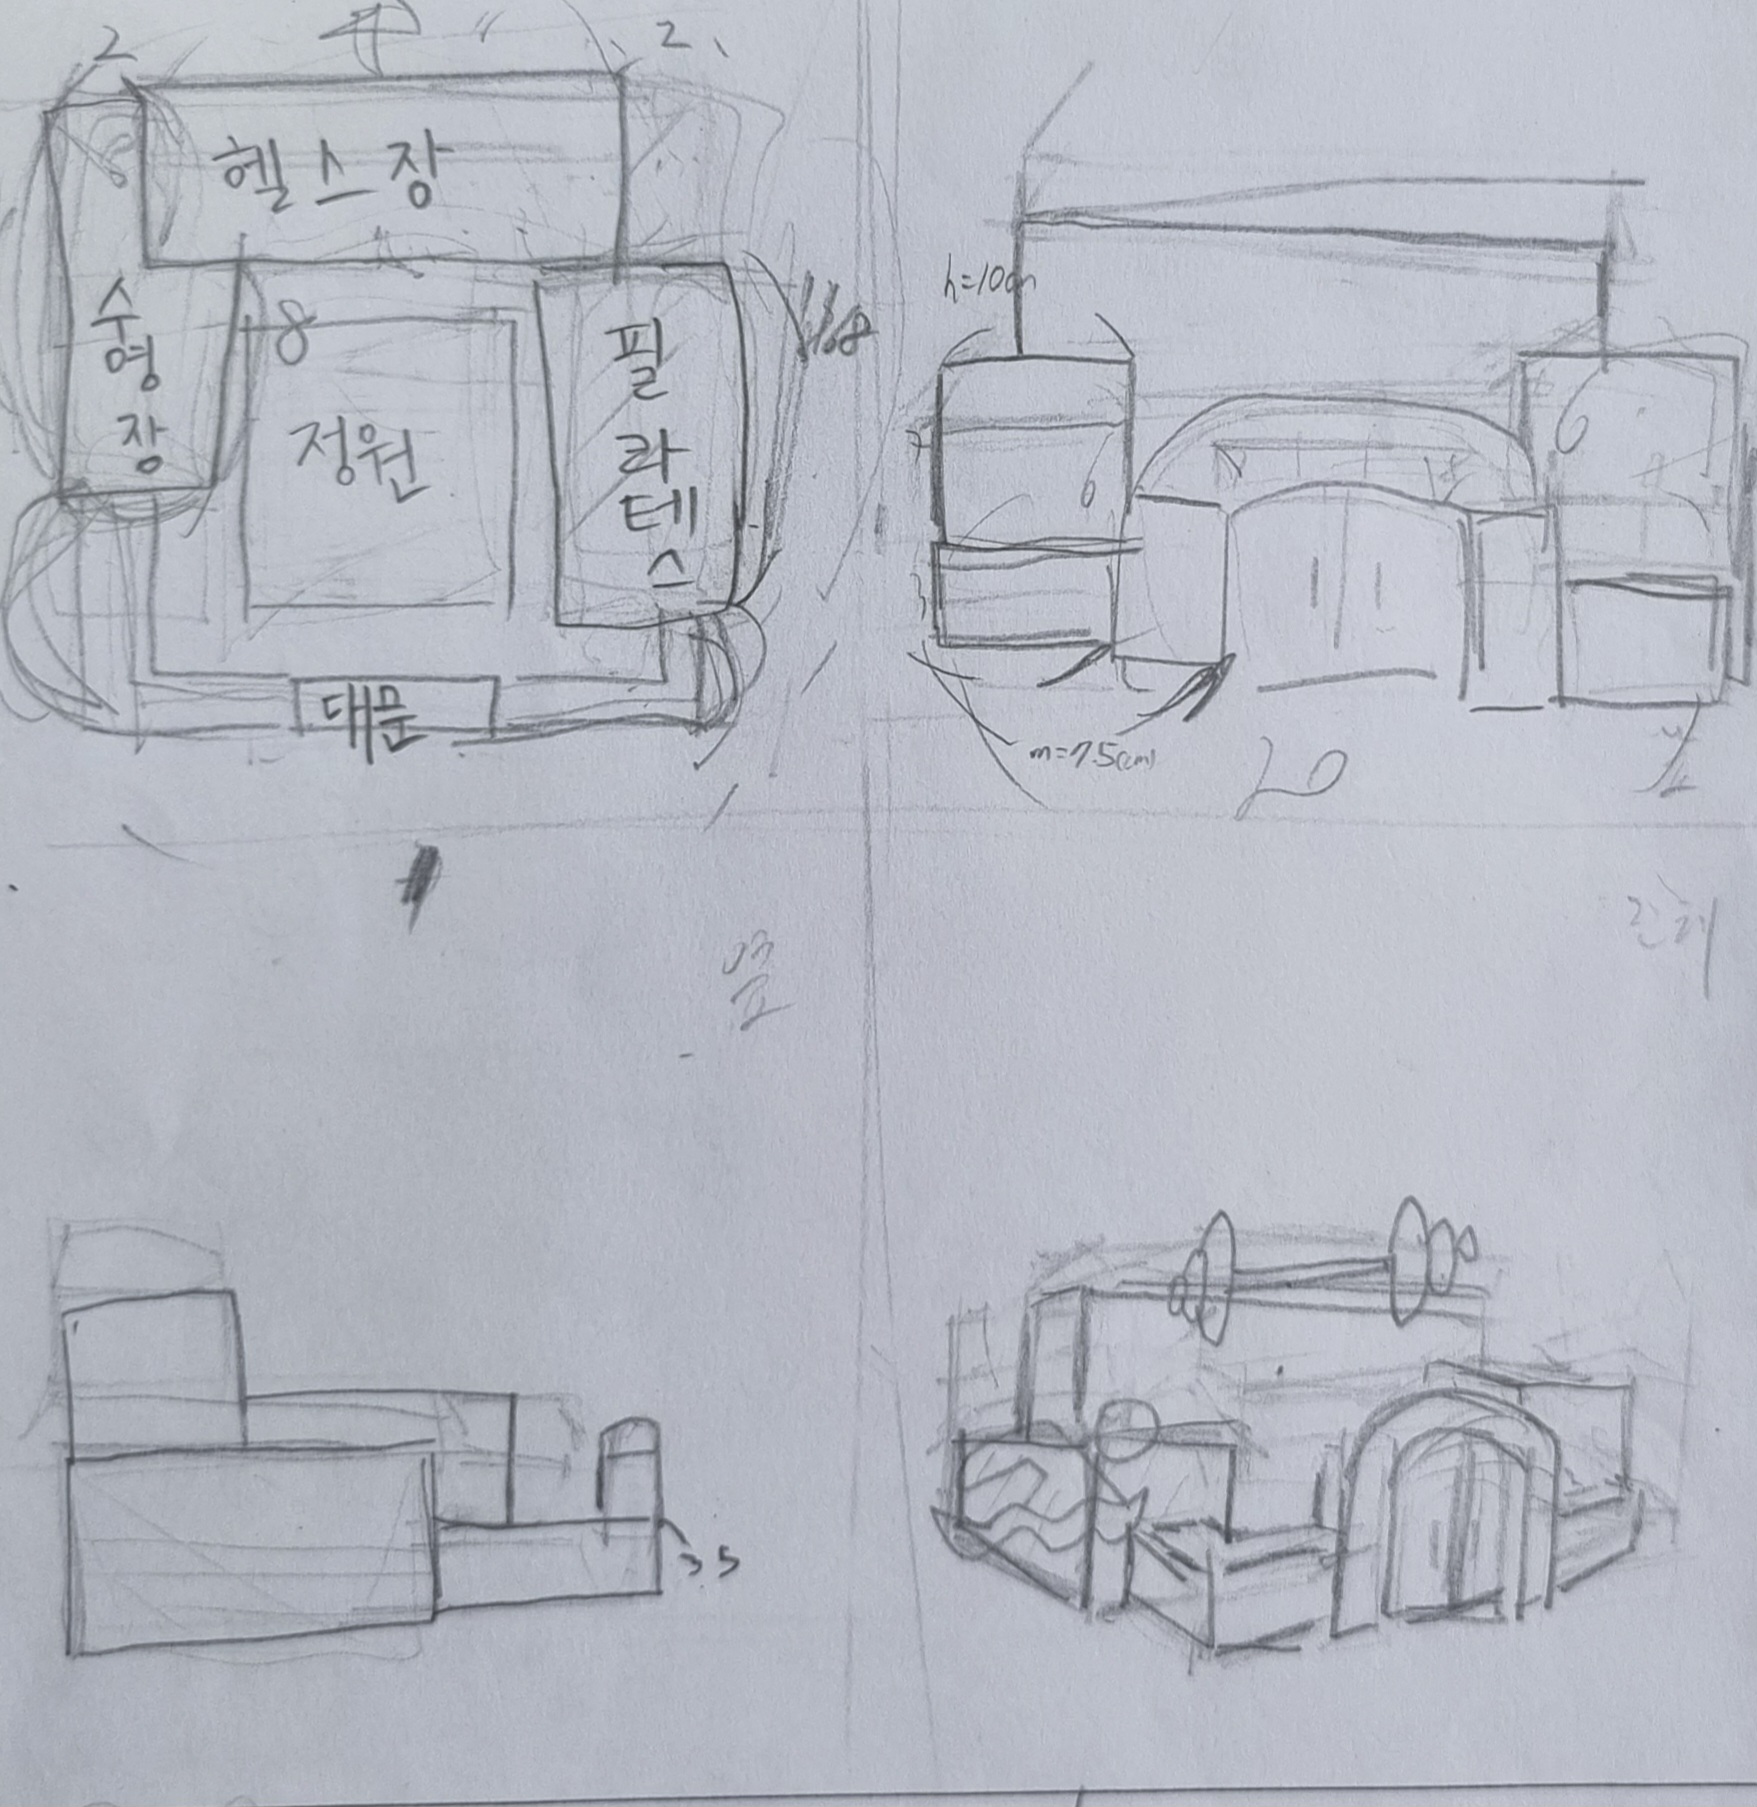 2
2
헬스장
수영장
8
정원
필라테스
대문
h=10cm
6
6
m=7.5(cm)
20
옆
전체
3.5